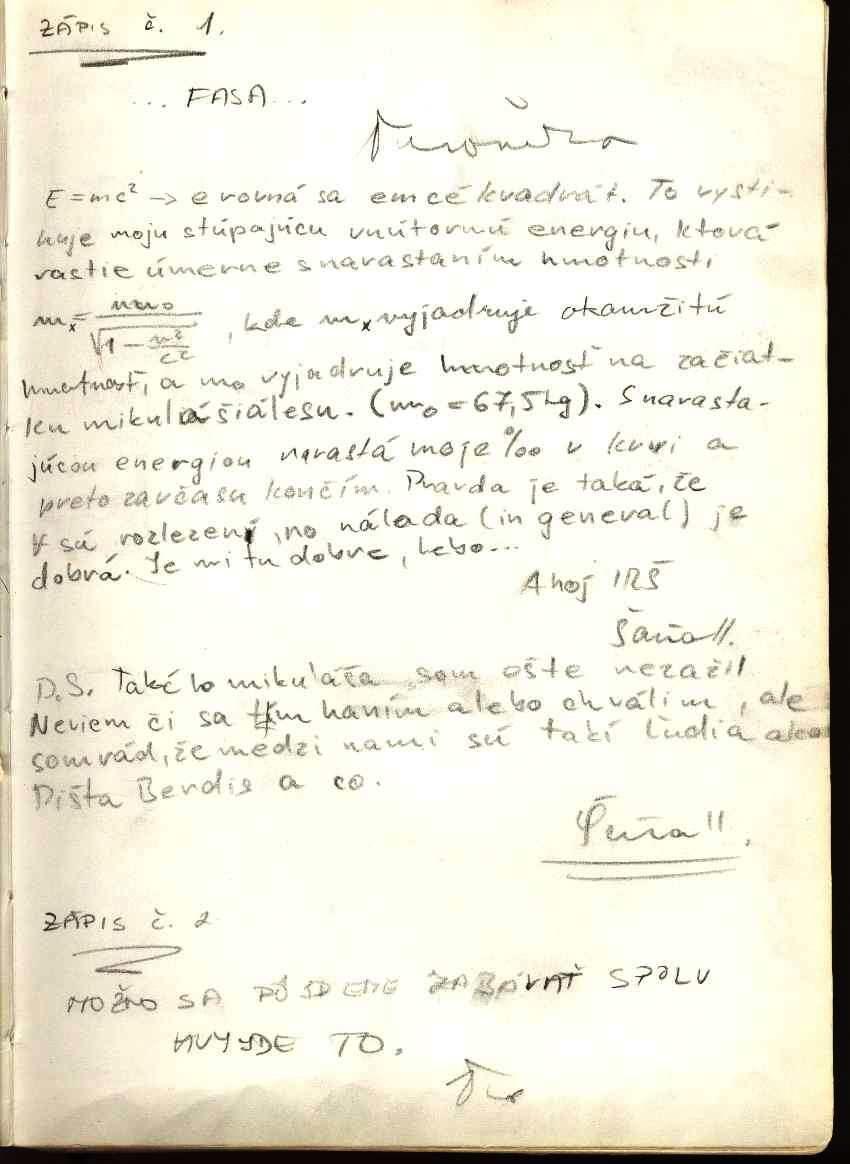 ZÁPIS č. 1.
... FASA ...
E = mc² → e rovná sa emcé kvadrát. To vysti-
huje moju stúpajúcu vnútornú energiu, ktorá
rastie úmerne s narastaním hmotnosti
mₓ = m₀ / √(1 - v²/c²) , kde mₓ vyjadruje okamžitú
hmotnosť, a m₀ vyjadruje hmotnosť na začiat-
ku mikulášiálesu. (m₀ = 67,5 kg). S narasta-
júcou energiou narastá moje ‰ v krvi a
preto zavčasu končím. Pravda je taká, že
sú rozlezení, no nálada (in general) je
dobrá. Je mi tu dobre, lebo...
Ahoj IRŠ
Šaňo II.
P.S. Takého mikuláša som ošte nezažil
Neviem či sa tým haním alebo chválim, ale
som rád, že medzi nami sú takí ľudia ako
Pišta Berdis a co.
ZÁPIS č. 2
MOŽNO SA PÔJDEME ZABÁVAŤ SPOLU
AK VYJDE TO.